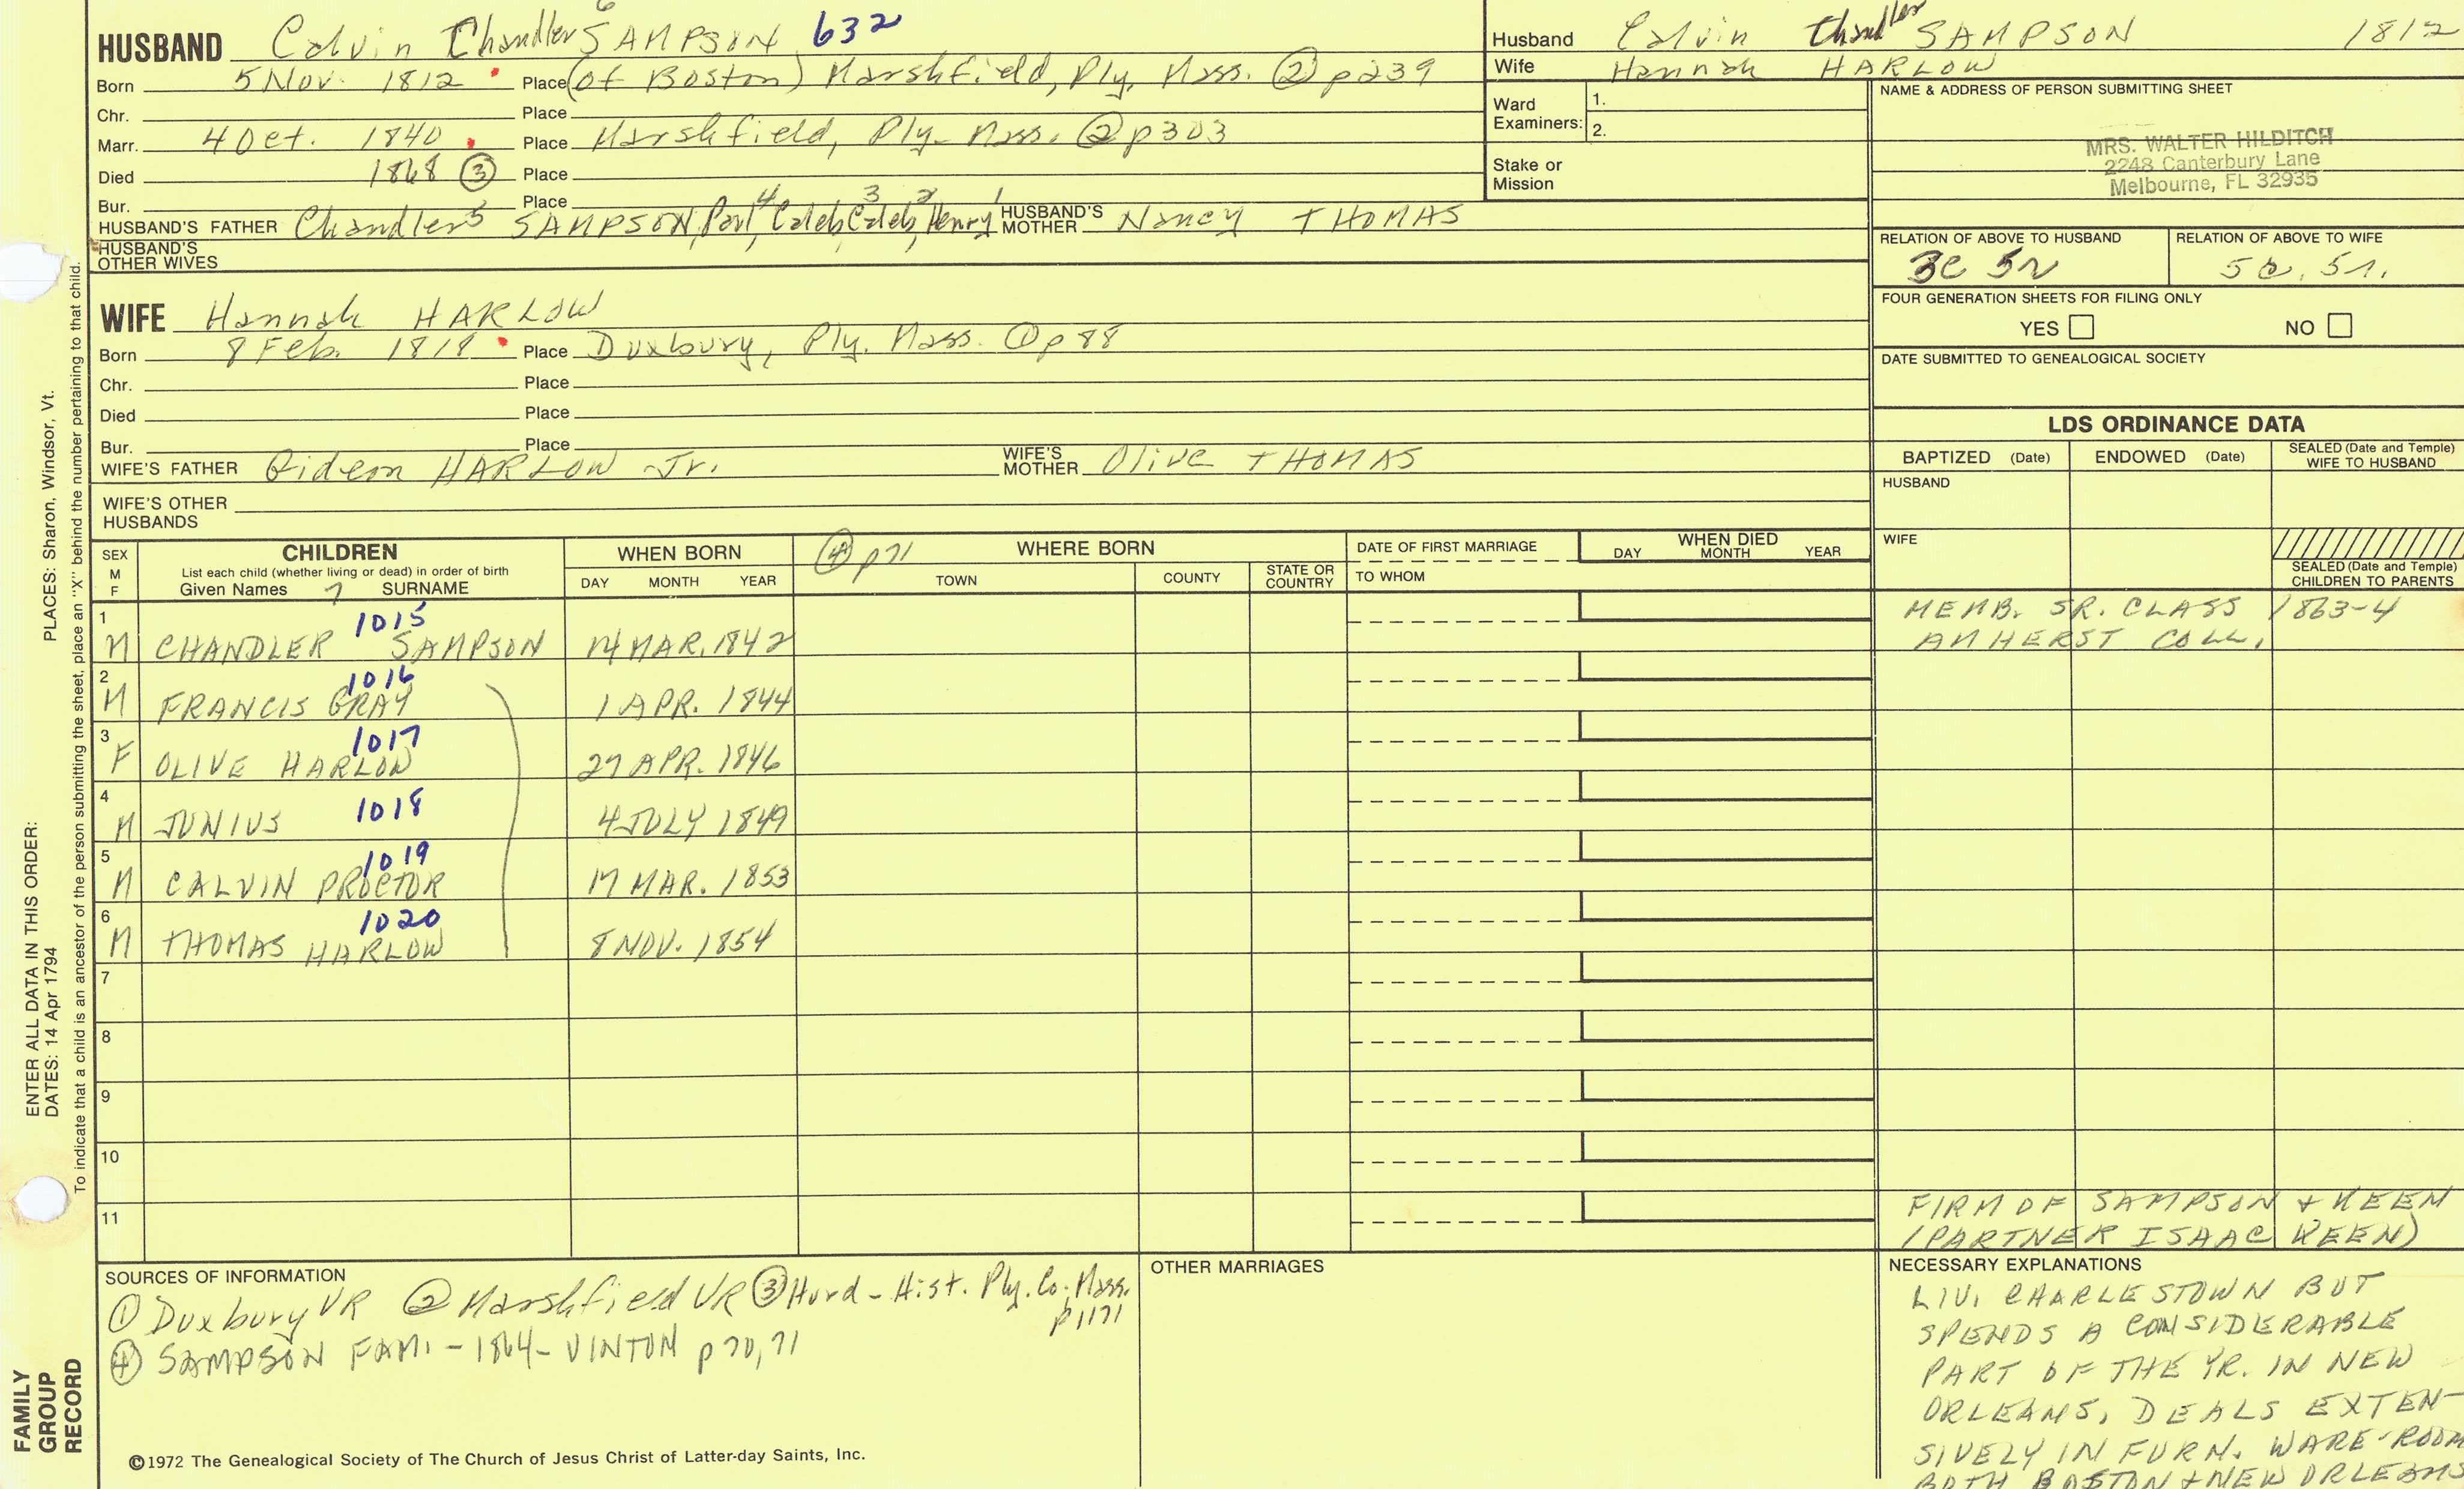 HUSBAND Calvin Chandler 6 SAMPSON 632
Born 5 Nov. 1812 Place (of Boston) Marshfield, Ply, Mass. ② p239
Chr. Place
Marr. 4 Oct. 1840 Place Marshfield, Ply. Mass. ② p303
Died 1868 ③ Place
Bur. Place
HUSBAND'S FATHER Chandler 5 SAMPSON, Paul 4, Caleb 3, Caleb 2, Henry 1 HUSBAND'S MOTHER Nancy THOMAS
HUSBAND'S OTHER WIVES
WIFE Hannah HARLOW
Born 8 Feb. 1818 Place Duxbury, Ply. Mass. ① p88
Chr. Place
Died Place
Bur. Place
WIFE'S FATHER Gideon HARLOW Jr. WIFE'S MOTHER Olive THOMAS
WIFE'S OTHER HUSBANDS
Husband Calvin Chandler SAMPSON 1812
Wife Hannah HARLOW
Ward Examiners: 1.
2.
Stake or Mission
NAME & ADDRESS OF PERSON SUBMITTING SHEET
MRS. WALTER HILDITCH
2248 Canterbury Lane
Melbourne, FL 32935
RELATION OF ABOVE TO HUSBAND RELATION OF ABOVE TO WIFE
3C 5r 5c. 5r.
FOUR GENERATION SHEETS FOR FILING ONLY
YES NO
DATE SUBMITTED TO GENEALOGICAL SOCIETY
LDS ORDINANCE DATA
BAPTIZED (Date) ENDOWED (Date) SEALED (Date and Temple) WIFE TO HUSBAND
HUSBAND
WIFE
SEALED (Date and Temple) CHILDREN TO PARENTS
SEX M F
CHILDREN
List each child (whether living or dead) in order of birth
Given Names 7 SURNAME
WHEN BORN
DAY MONTH YEAR
④ p71 WHERE BORN
TOWN COUNTY STATE OR COUNTRY
DATE OF FIRST MARRIAGE
TO WHOM
WHEN DIED
DAY MONTH YEAR
1 M CHANDLER 1015 SAMPSON 14 MAR. 1842
MEMB. SR. CLASS 1863-4
AMHERST COLL.
2 M FRANCIS GRAY 1016 1 APR. 1844
3 F OLIVE HARLOW 1017 27 APR. 1846
4 M JUNIUS 1018 4 JULY 1849
5 M CALVIN PROCTOR 1019 17 MAR. 1853
6 M THOMAS HARLOW 1020 8 NOV. 1854
7
8
9
10
11
FIRM OF SAMPSON + KEEN
(PARTNER ISAAC KEEN)
SOURCES OF INFORMATION
① Duxbury VR ② Marshfield VR ③ Hurd - Hist. Ply. Co. Mass. p1171
④ SAMPSON FAM. - 1864 - VINTON p70,71
OTHER MARRIAGES
NECESSARY EXPLANATIONS
LIV. CHARLESTOWN BUT
SPENDS A CONSIDERABLE
PART OF THE YR. IN NEW
ORLEANS, DEALS EXTEN-
SIVELY IN FURN. WARE-ROOM
BOTH BOSTON + NEW ORLEANS
©1972 The Genealogical Society of The Church of Jesus Christ of Latter-day Saints, Inc.
PLACES: Sharon, Windsor, Vt.
ENTER ALL DATA IN THIS ORDER:
DATES: 14 Apr 1794
To indicate that a child is an ancestor of the person submitting the sheet, place an "X" behind the number pertaining to that child.
FAMILY
GROUP
RECORD